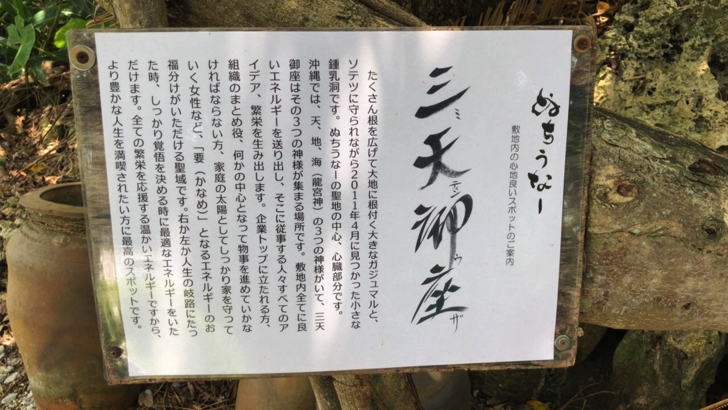 ぬちうなー
敷地内の心地良いスポットのご案内
三天御座
ミテンウサ
たくさん根を広げて大地に根付く大きなガジュマルと、
ソテツに守られながら2011年4月に見つかった小さな
鍾乳洞です。ぬちうなーの聖地の中心、心臓部分です。
沖縄では、天、地、海（龍宮神）の3つの神様がいて、三天
御座はその3つの神様が集まる場所です。敷地内全てに良
いエネルギーを送り出し、そこに従事する人々すべてのア
イデア、繁栄を生み出します。企業トップに立たれる方、
組織のまとめ役、何かの中心となって物事を進めていかな
ければならない方、家庭の太陽としてしっかり家を守って
いく女性など、「要（かなめ）」となるエネルギーのお
福分けがいただける聖域です。右か左か人生の岐路にたっ
た時、しっかり覚悟を決める時に最適なエネルギーをいた
だけます。全ての繁栄を応援する温かいエネルギーですから、
より豊かな人生を満喫されたい方に最高のスポットです。